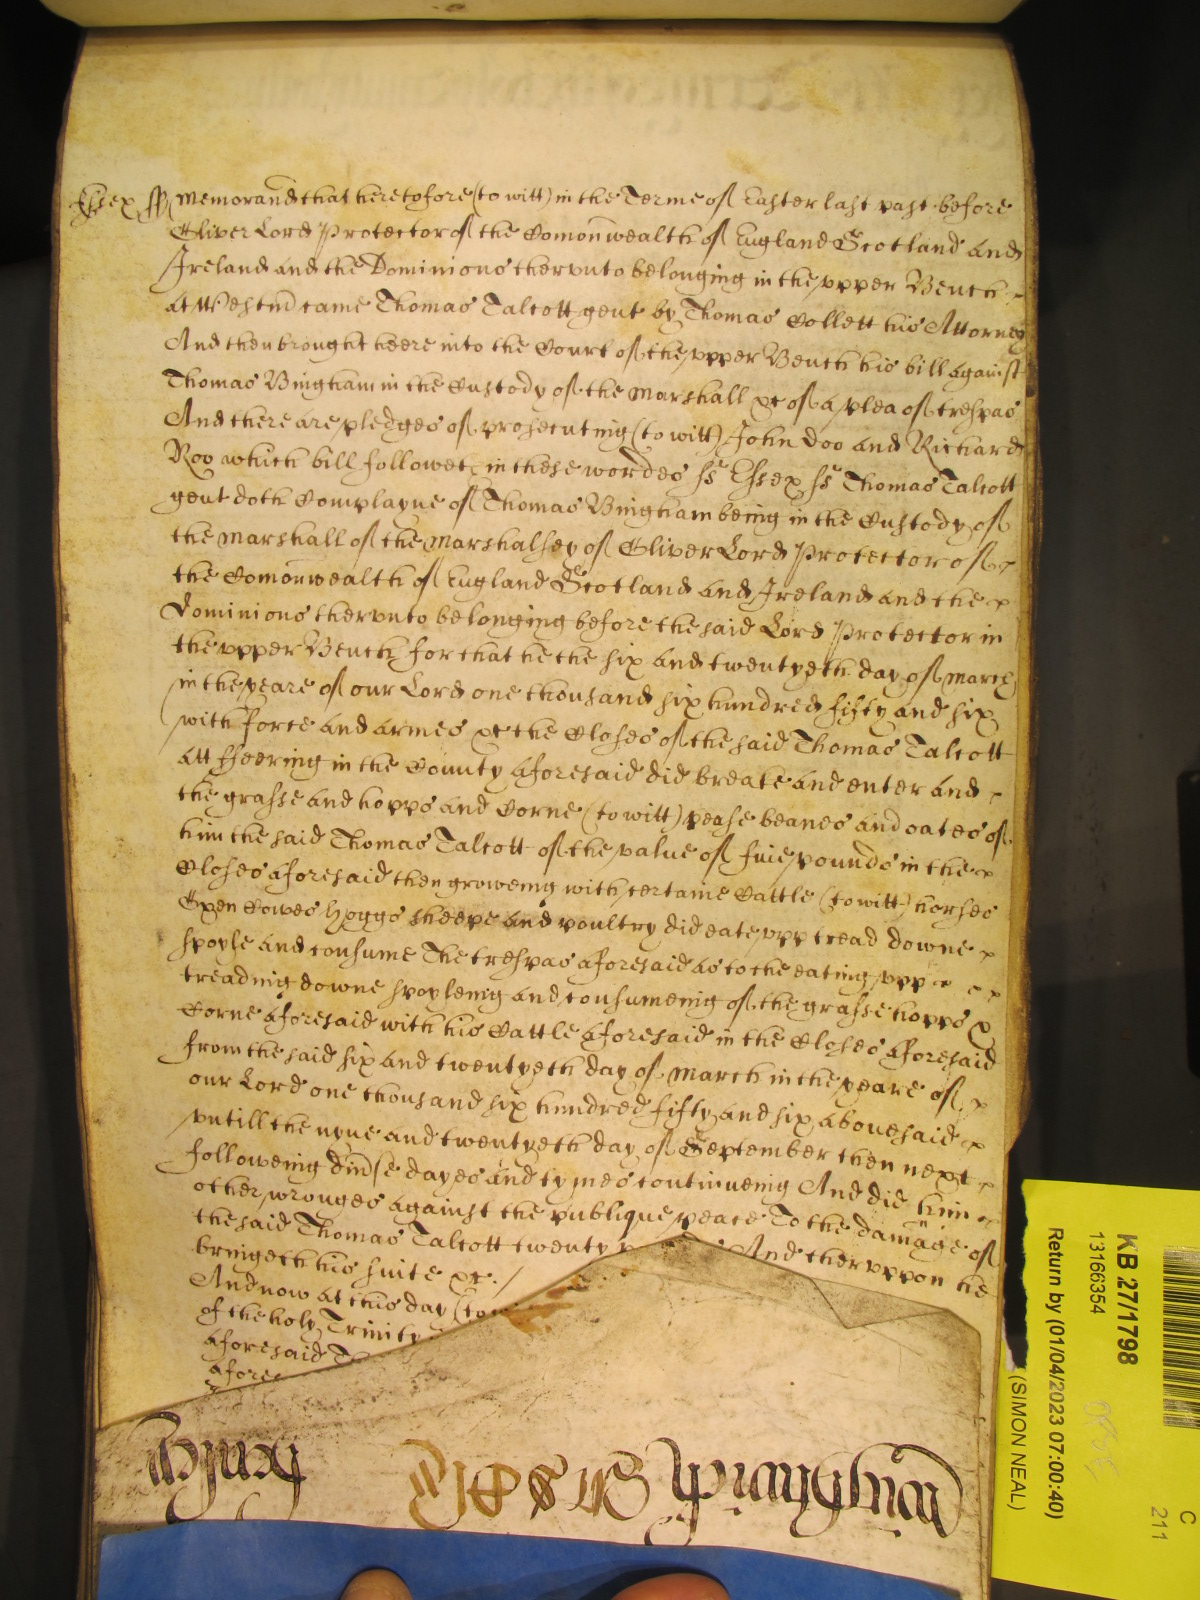 Essex ss Memorand that heretofore (to witt) in the Terme of Easter last past before
Oliver Lord Protector of the Comonwealth of England Scotland and
Ireland and the Dominions thervnto belonging in the vpper Bench
at Westm came Thomas Talcott gent by Thomas Collett his Attorney
And then brought heere into the Court of the vpper Bench his bill against
Thomas Bingham in the Custody of the Marshall &c of a plea of trespas
And there are pledges of prosecuting (to witt) John Doo and Richard
Roo which bill followeth in these wordes ss Essex ss Thomas Talcott
gent doth Complayne of Thomas Bingham being in the Custody of
the Marshall of the Marshalsey of Oliver Lord Protector of
the Comonwealth of England Scotland and Ireland and the
Dominions thervnto belonging before the said Lord Protector in
the vpper Bench for that he the six and twentyeth day of March
in the yeare of our Lord one thousand six hundred fifty and six
with force and armes &c the Closes of the said Thomas Talcott
att ffeering in the County aforesaid did breake and enter and
the grasse and hopps and Corne (to witt) pease beanes and oates of
him the said Thomas Talcott of the value of fiue pounds in the
Closes aforesaid then groweing with certaine Cattle (to witt) horses
Oxen Cowes Hoggs sheepe and poultry did eate vpp tread downe
spoyle and consume The trespas aforesaid as to the eating vpp
treading downe spoyleing and consumeing of the grasse hopps &
Corne aforesaid with his Cattle aforesaid in the Closes aforesaid
from the said six and twentyeth day of March in the yeare of
our Lord one thousand six hundred fifty and six abouesaid
vntill the nyne and twentyeth day of September then next
followeing diu'se dayes and tymes continueing And did him
other wronges against the publique peace To the damage of
the said Thomas Talcott twenty And thervppon he
bringeth his suite &c.
And now at this day (to
of the holy Trinity
aforesaid
afore
KB 27/1798
13166354
Return by (01/04/2023 07:00:40)
(SIMON NEAL)
C
211